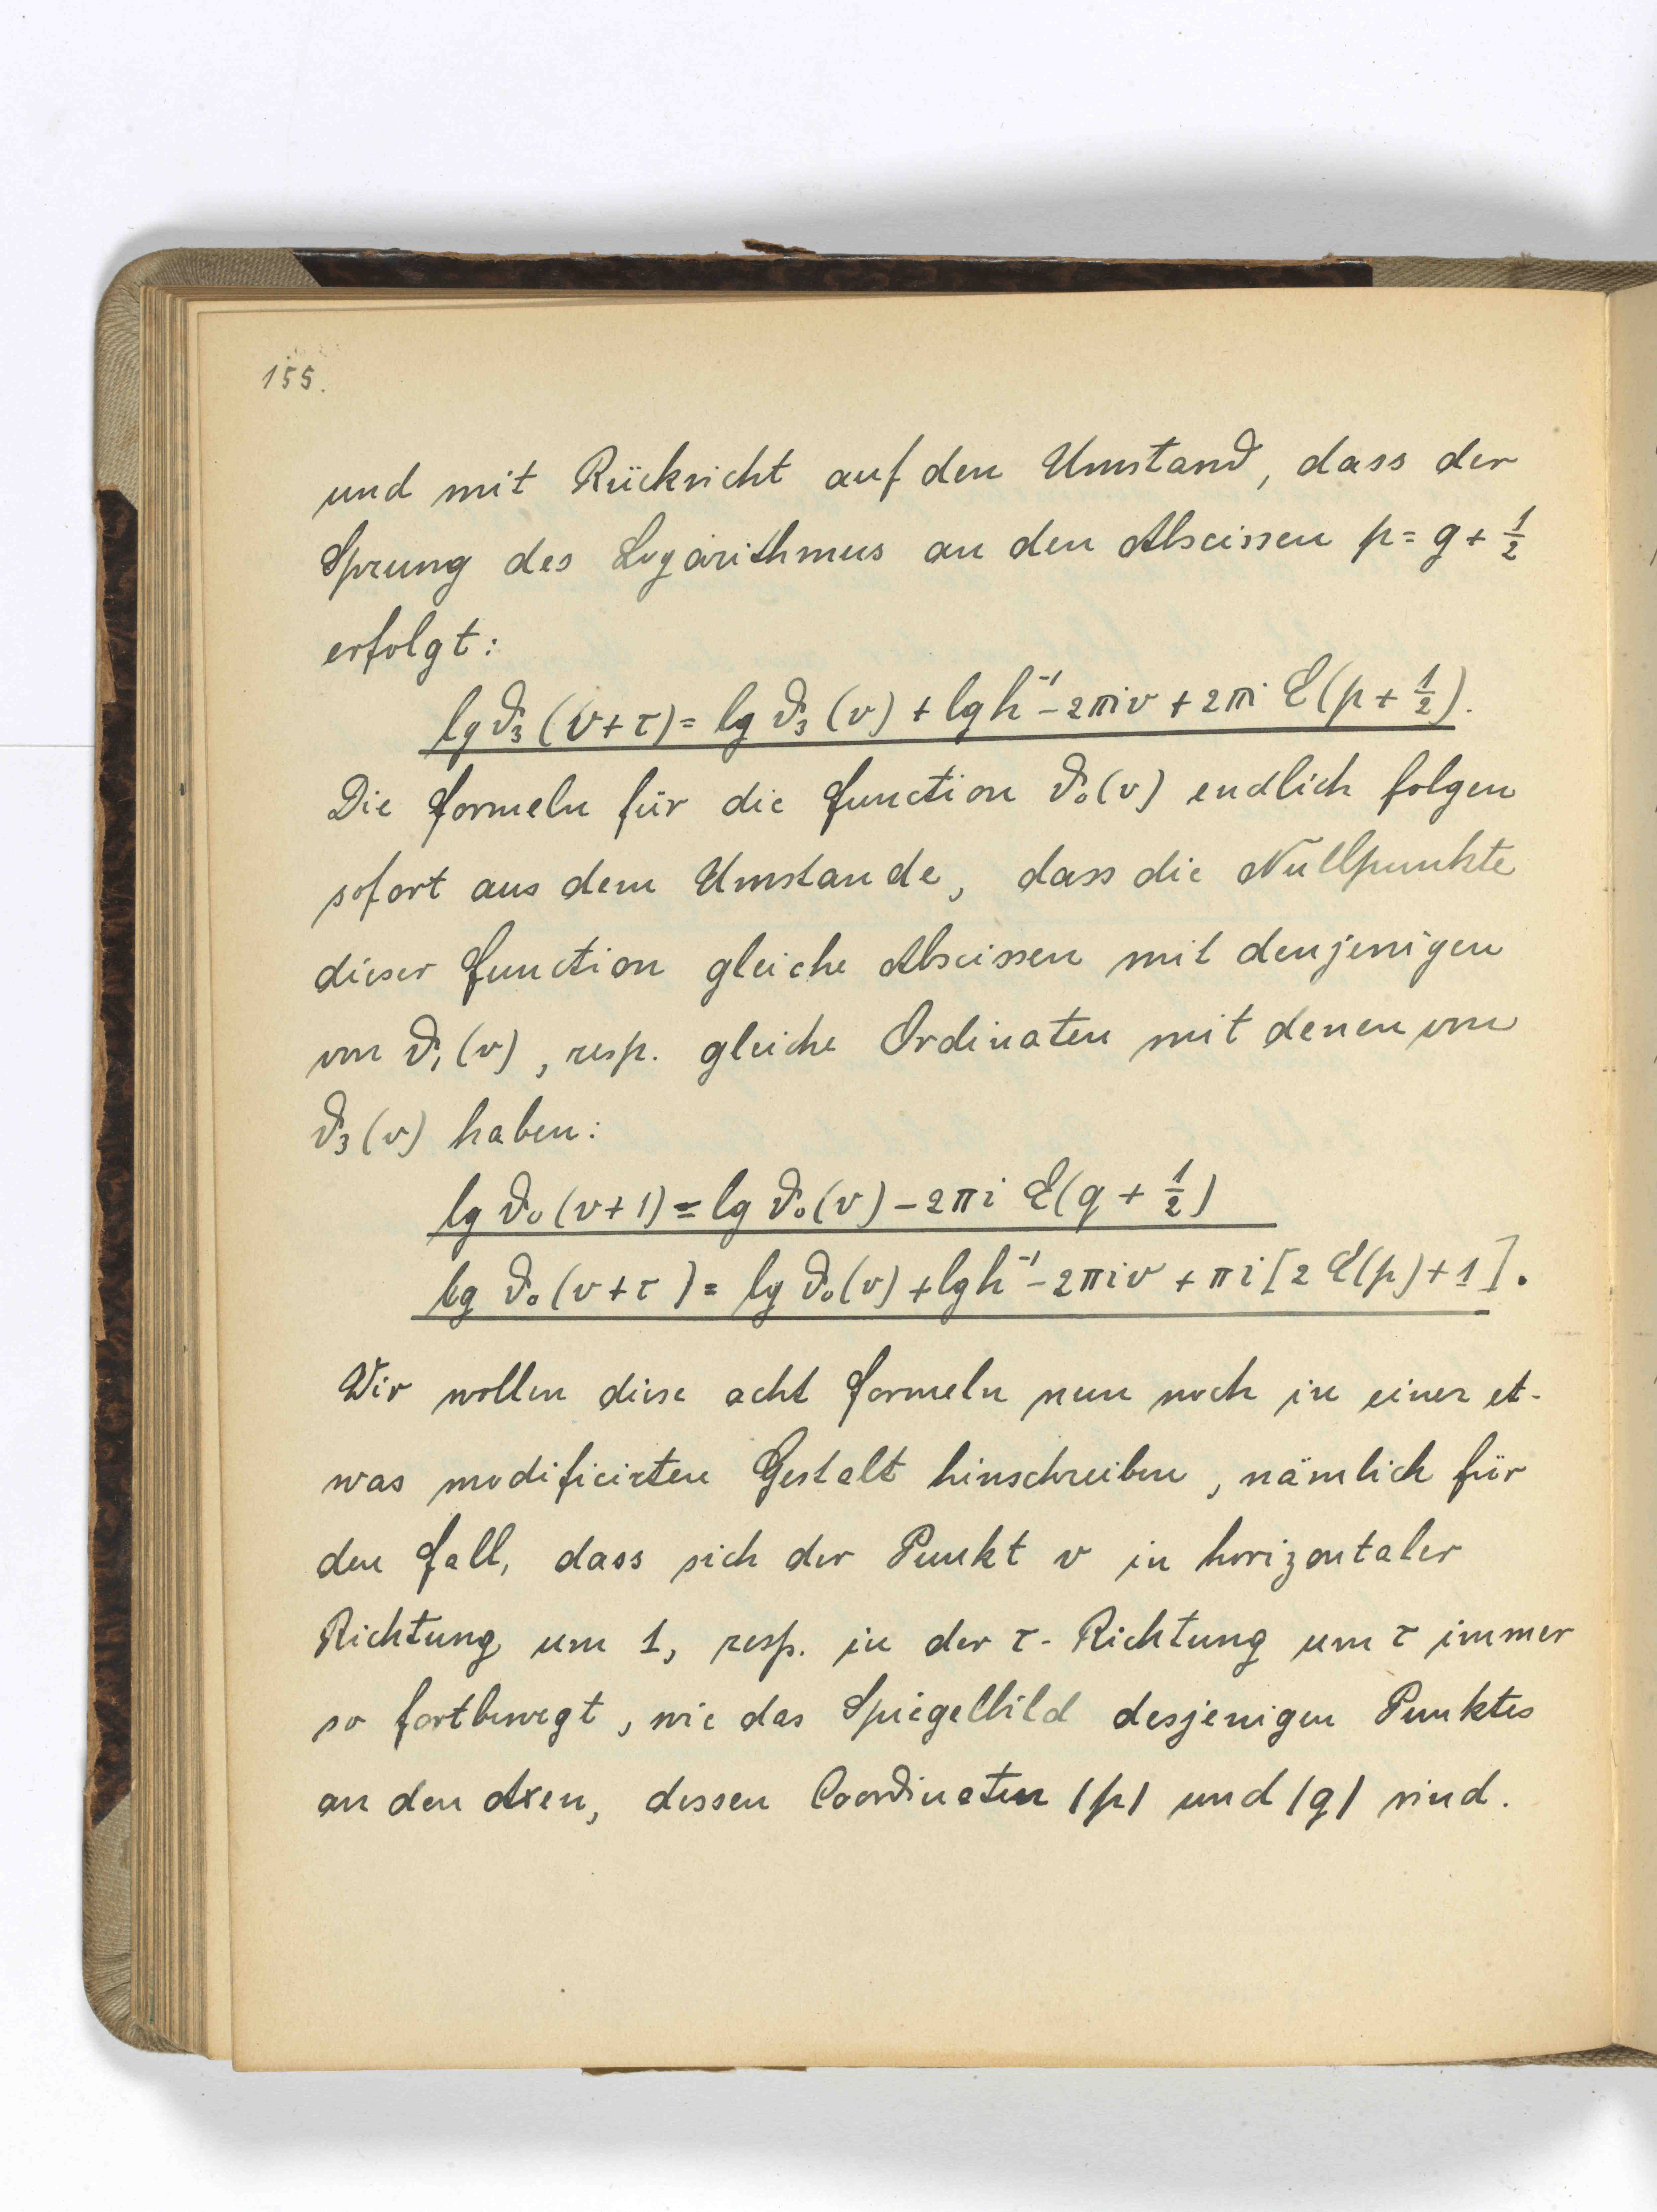 155.
und mit Rücksicht auf den Umstand, dass der
Sprung des Logarithmus an den Abscissen p = g + 1/2
erfolgt:
lg ϑ₃ (v+τ) = lg ϑ₃ (v) + lg h⁻¹ - 2πiv + 2πi E(p + 1/2).
Die Formeln für die Function ϑ₀(v) endlich folgen
sofort aus dem Umstande, dass die Nullpunkte
dieser Function gleiche Abscissen mit denjenigen
von ϑ₁(v), resp. gleiche Ordinaten mit denen von
ϑ₃(v) haben:
lg ϑ₀ (v+1) = lg ϑ₀(v) - 2πi E(q + 1/2)
lg ϑ₀ (v+τ) = lg ϑ₀(v) + lg h⁻¹ - 2πiv + πi [2 E(p) + 1].
Wir wollen diese acht Formeln nun noch in einer et-
was modificirten Gestalt hinschreiben, nämlich für
den Fall, dass sich der Punkt v in horizontaler
Richtung um 1, resp. in der τ-Richtung um τ immer
so fortbewegt, wie das Spiegelbild desjenigen Punktes
an den Axen, dessen Coordinaten |p| und |q| sind.